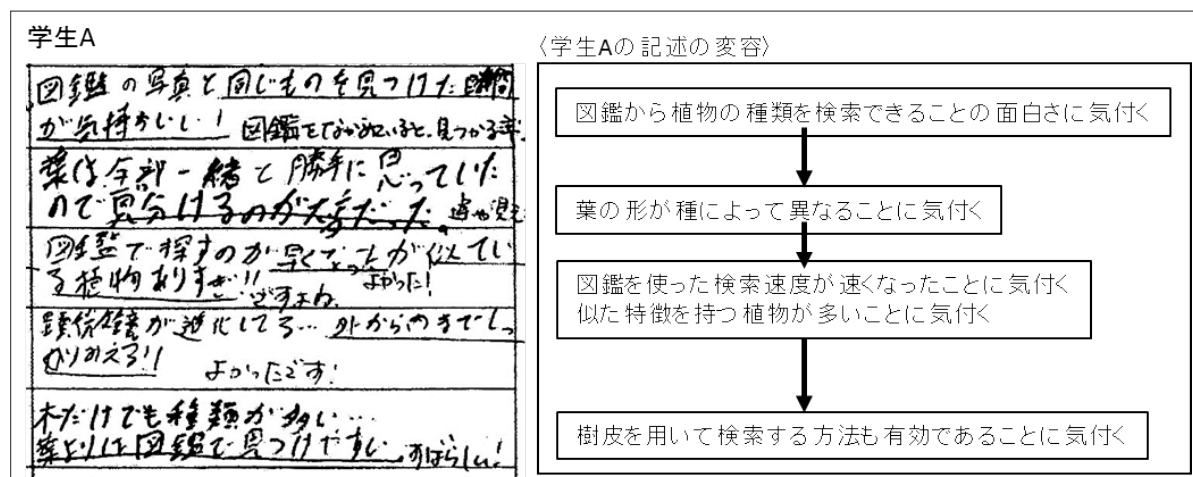 学生A
図鑑の写真と同じものを見つけた瞬間
が気持ちいい! 図鑑をながめていると、見つかる率
葉は全部一緒と勝手に思っていた
ので見分けるのが大変だった。
図鑑で探すのが早くなったが似てい
る植物ありすぎ!! ですよね。 よかった!
顕微鏡が進化してる…外から内までしっ
かりみえる!! よかったです!
木だけでも種類が多い…
葉よりは図鑑で見つけやすい。すばらしい!
〈学生Aの記述の変容〉
図鑑から植物の種類を検索できることの面白さに気付く
葉の形が種によって異なることに気付く
図鑑を使った検索速度が速くなったことに気付く
似た特徴を持つ植物が多いことに気付く
樹皮を用いて検索する方法も有効であることに気付く